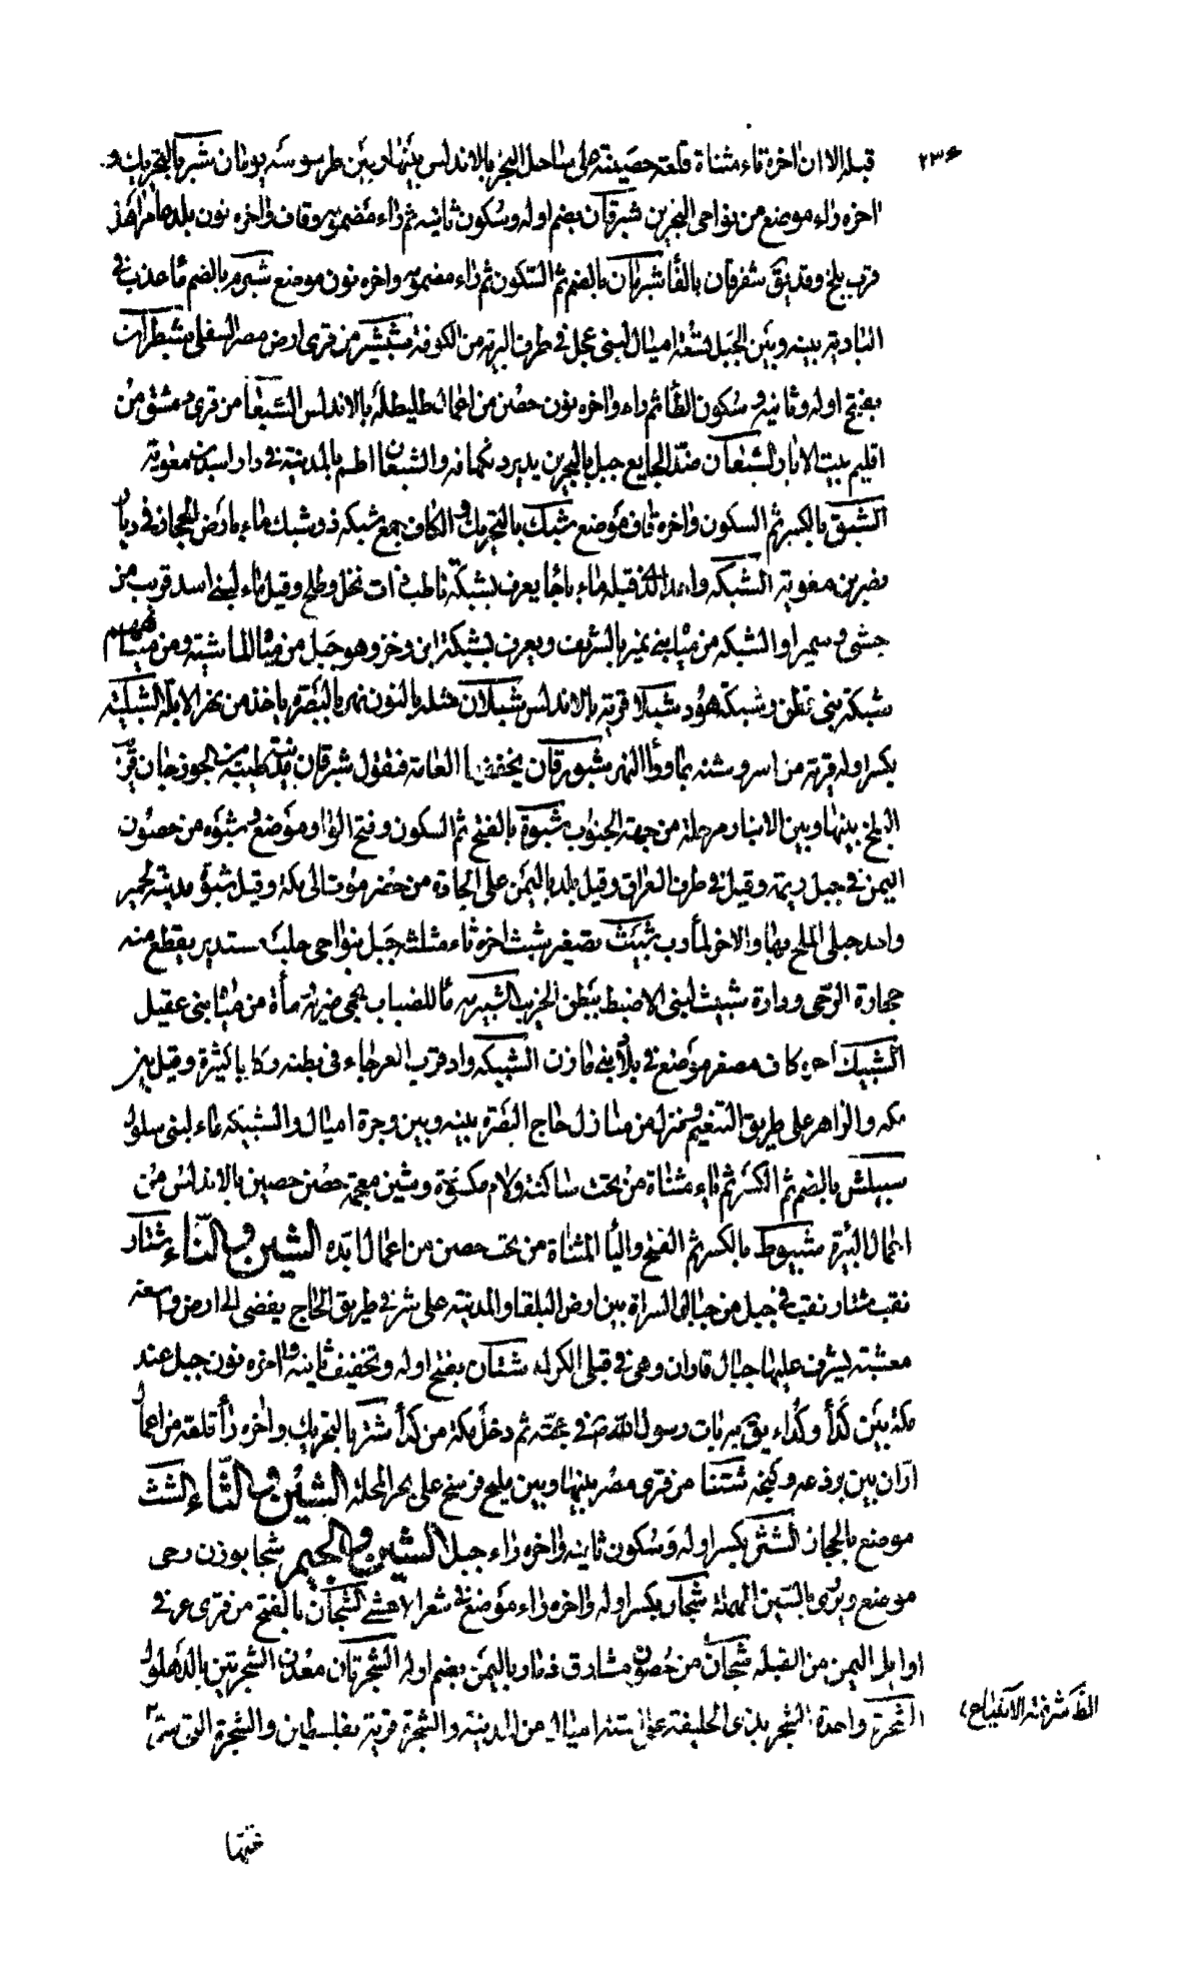 ٢٣٤
قبله الا ان اخرة تاء مثناة قلعة حصينة على ساحل البحر بالاندلس بينها وبين طرسوسة يومان شبر بالتحريك و
اخره راء موضع من نواحى البحرين شبرقان بضم اوله وسكون ثانيه ثم راء مضمومه وقاف واخره نون بلد عامر اهل
قرب بلخ وقد يق شفرقان بالفا شبرمان بالضم ثم السكون ثم راء مضمومه واخره نون موضع شبرم بالضم ماء عذب فى
البادية بينه وبين الجبل تسعة اميال لبنى عجل فى طرف البرية من الكوفة شبشير من قرى ارض مصر السفلى شبطران
بفتح اوله وثانيه و سكون الطا ثم راء واخره نون حصن من اعمال طليطلة بالاندلس الشبعا من قرى دمشق من
اقليم بيت الابار الشبعان ضد الجايع جبل بالبحرين يتبرد بكهافه والشبعان اطم بالمدينة فى دار اسيد بن معوية
الشبق بالكسر ثم السكون واخره قاف موضع شبك بالتحريك و الكاف جمع شبكه ذو شبك ماء بارض الحجاز فى ديار
نضر بن معوية الشبكه واحد الذى قبله ماء باجا يعرف بشبكة ياطب ذات نخل وطلح وقيل ماء لبنى اسد قريب من
حبشى و سميرا والشبكه من مياه بنى نمير بالشريف ويعرف بشبكة ابن دخن وهو جبل من مياه الماشية ومن مياههم
شبكة بنى قطن وشبكة هبود شبلا قرية بالاندلس شبلان مثله بالنون نهر بالبصرة ياخذ من نهر الابلة الشبلية
بكسر اوله قرية من اسروشنه بما وراء النهر شبورقان يخففها العامة فتقول شبرقان مدينة طيبة من الجوزجان قرب
البلخ بينها وبين الانبار مرحلة من جهة الجنوب شبوة بالفتح ثم السكون وفتح الواو موضع و شبوه من حصون
اليمن فى جبل ريمة وقيل فى طرف العراق وقيل بلد باليمن على الجادة من حضرموت الى مكة وقيل شبوة مدينة لحمير
واحد جبلى الملح بها والاخر لمأرب شبيث تصغير شبث اخره ثاء مثلث جبل بنواحى حلب مستدير يقطع منه
حجارة الرحى ودارة شبيث لبنى الاضبط ببطن الجريب الشبيرمه ماء للضباب بحمى ضرية مأة من مياه بنى عقيل
الشبيك اخره كاف مصغر موضع فى بلاد بنى مازن الشبيكه واد قرب العرجاء فى بطنه ركايا كثيرة وقيل بين
مكه والزاهر على طريق التنعيم ومنزل من منازل حاج البصرة بينه وبين وجرة اميال والشبيكه ماء لبنى سلول
شبيلش بالضم ثم الكسر ثم ياء مثناة من تحت ساكنة ولام مكسورة وشين معجمة حصن حصين بالاندلس من
اعمال البيرة شبيوط بالكسر ثم الفتح والياء المثناة من تحت حصن من اعمال ابده الشين و التاء شتار
نقب شتار نقب فى جبل من جبال السراة بين ارض البلقا والمدينة على شرقى طريق الحاج يفضى الى ارض واسعة
معشبة يشرف عليها جبال فاران وهى فى قبلى الكرك شتان بفتح اوله وتخفيف ثانيه واخره نون جبل عند
مكة بين كدأ وكداء يق به بات رسول الله ص فى حجته ثم دخل مكة من كدأ شتر بالتحريك واخره را قلعة من اعمال
اران بين برذعه وكنجه شتنا من قرى مصر بينها وبين مليج فرسخ على بحر المحلة الشين و الثاء الشث
موضع بالحجاز الشثر بكسر اوله وسكون ثانيه واخره راء جبل الشين و الجيم شجا بوزن رحى
موضع ويروى بالسين المهملة شجار بكسر اوله واخره راء موضع فى شعر الاعشى الشجان بالفتح من قرى عرفى
اوايل اليمن من القبله شجان من حصون مشارق ذمار باليمن بضم اوله الشجرتان معدن الشجرتين بالذهلول
الشجرة واحدة الشجر بذى الحليفة على ستة اميال من المدينة والشجرة قرية بفلسطين والشجرة التى سر
تحتها